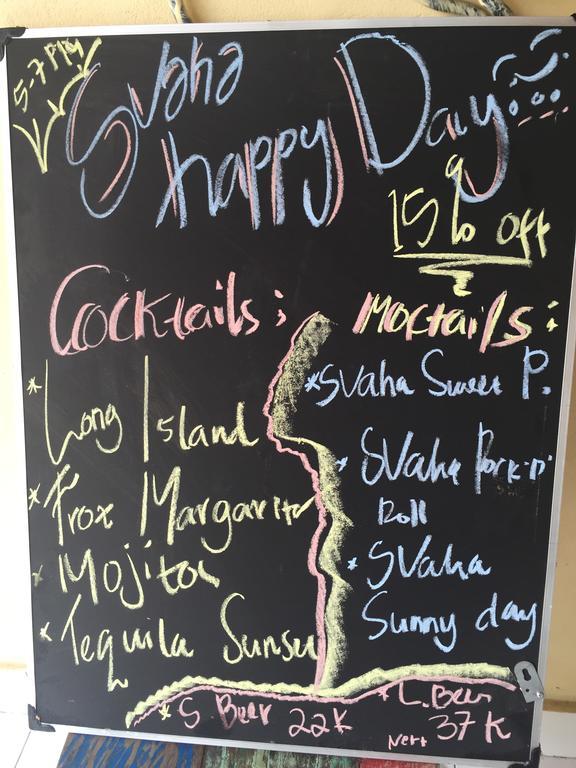 5-7 PM
Svaha
happy Day
15% off
Cocktails:
* Long Island
* Froz Margarita
* Mojitos
* Tequila Sunsu
Moctails:
* SVaha Sweet P.
* SVaha Pork-n'
Roll
* SVaha
Sunny day
* S. Beer 22K
* L. Beer
Nett 37K